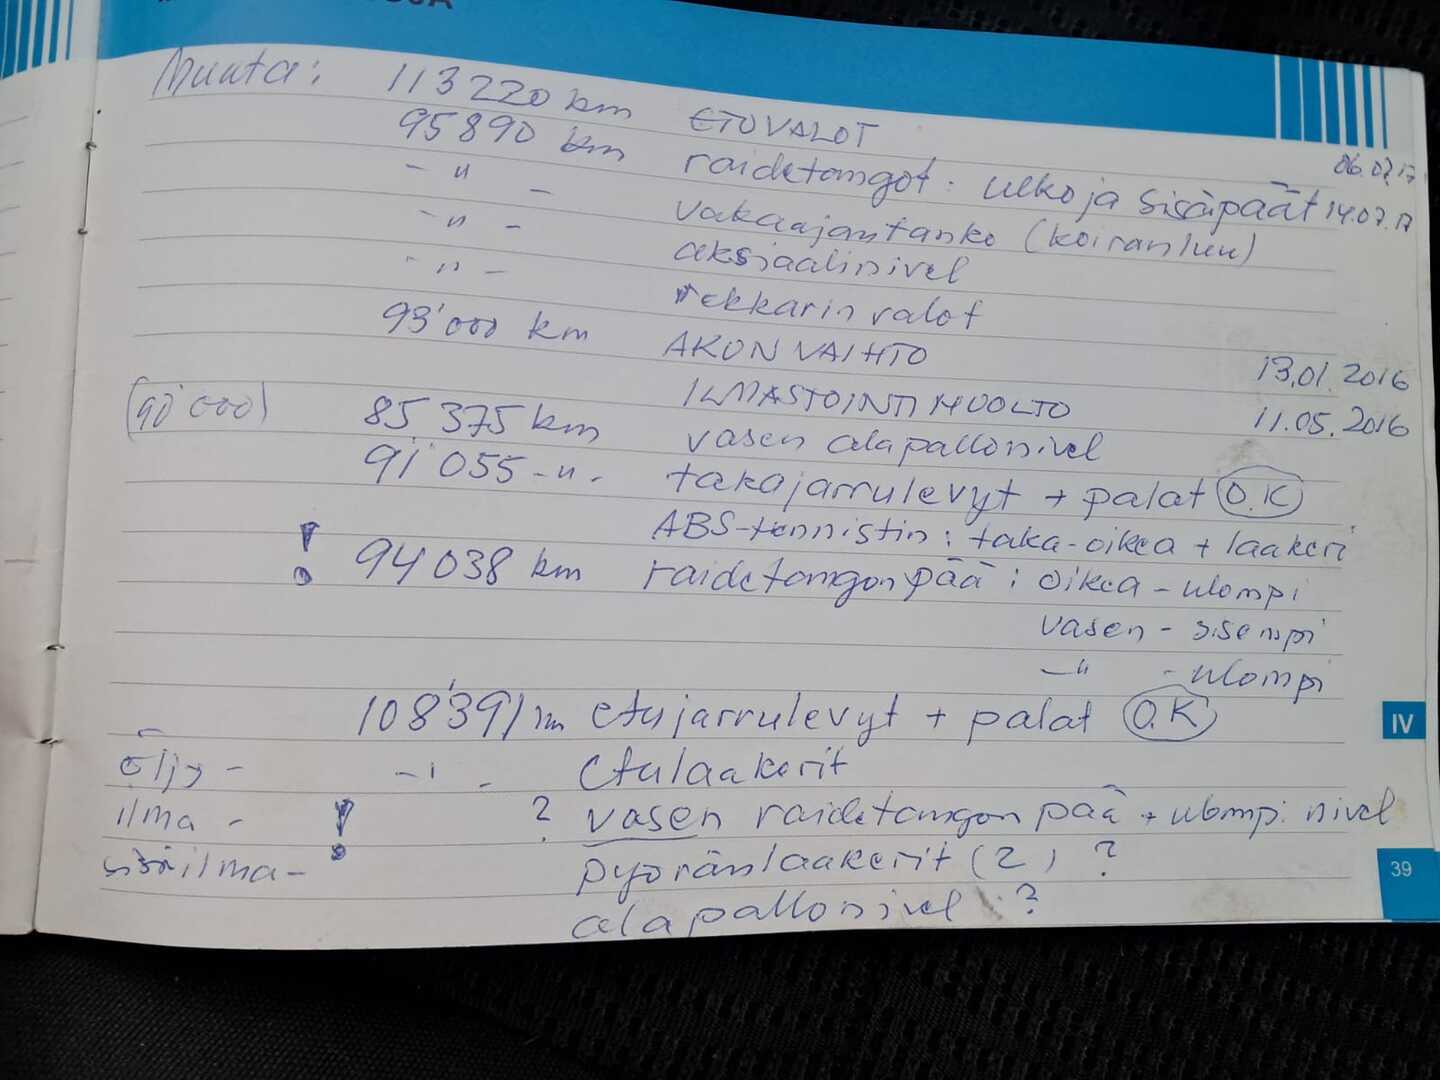 Muuta: 113220 km ETUVALOT
95890 km raidetangot: ulko ja sisäpäät 14.07.17
- " - vakaajantanko (koiranluu)
- " - aksiaalinivel
- " - rekkarin valot
93'000 km AKUN VAIHTO 13.01.2016
ILMASTOINTIHUOLTO 11.05.2016
(90'000) 85375 km vasen alapallonivel
91'055 -"- takajarrulevyt + palat O.K
ABS-tunnistin: taka-oikea + laakeri
! 94038 km raidetangon pää: oikea - ulompi
vasen - sisempi
-"- - ulompi
108'391 km etujarrulevyt + palat O.K
öljy - -"- etulaakerit
ilma - ! ? vasen raidetangon pää + ulompi nivel
sisäilma - pyöränlaakerit (2) ?
alapallonivel ?
IV
39